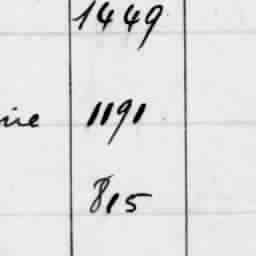 1449
1191
815